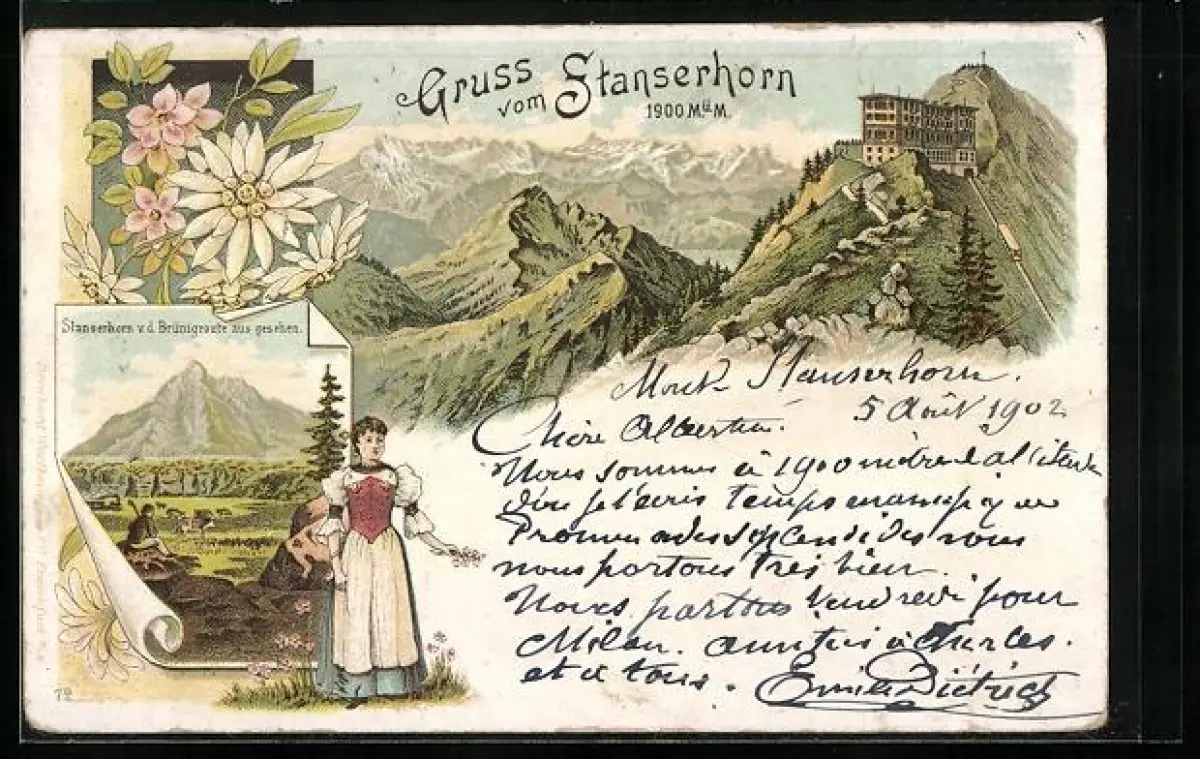 Gruss
vom Stanserhorn
1900 M.ü.M.
Stanserhorn v. d. Brünigroute aus gesehen.
Mont Stanserhorn.
5 Août 1902
Chère Albertine.
Nous sommes à 1900 mètres d'altitude
d'où je t'écris temps
Promenades splendides nous
nous portons très bien.
Nous partons Vendredi pour
Milan. amitiés à Charles.
et à tous. Emile Dietrich
70